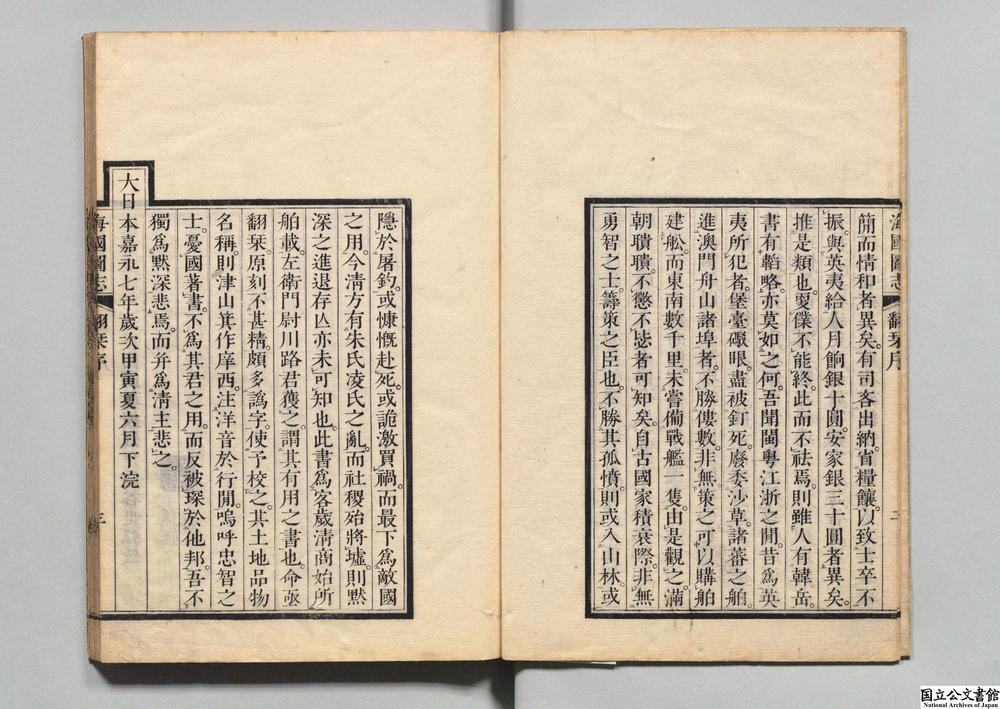 海國圖志 翻栞序 二
簡而情和者異矣。有司吝出納省糧饟。以致士卒不
振。與英夷給人月餉銀十圓。安家銀三十圓者異矣。
推是類也。叓僕不能終。此而不祛焉。則雖人有韓岳。
書有韜略。亦莫如之何。吾聞閩粤江浙之閒。昔爲英
夷所犯者。堡臺礮眼。盡被釘死。廢委沙草。諸蕃之舶。
進澳門舟山諸埠者。不勝僂數。非無策之可以購舶
建舩。而東南數千里。未嘗僃戰艦一隻。由是觀之。滿
朝聵聵。不懲不毖者可知矣。自古國家積衰際。非無
勇智之士籌策之臣也。不勝其孤憤。則或入山林。或
隱於屠釣。或慷慨赴死。或詭激買禍。而最下爲敵國
之用。今清方有朱氏凌氏之亂。而社稷始將墟。則默
深之進退存亾亦未可知也。此書爲客歲清商始所
舶載。左衛門尉川路君獲之。謂其有用之書也。命亟
翻栞。原刻不甚精。頗多譌字。使予校之。其土地品物
名稱。則津山箕作庠西。注洋音於行閒。嗚呼忠智之
士。憂國著書。不爲其君之用。而反被琛於他邦。吾不
獨爲默深悲焉。而并爲清主悲之。
大日本嘉永七年歲次甲寅夏六月下浣
海國圖志 翻栞序 三
国立公文書館
National Archives of Japan